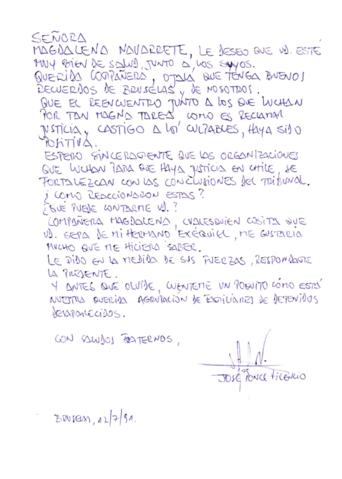 SEÑORA
MAGDALENA NAVARRETE, LE DESEO QUE UD. ESTE
MUY BIEN DE SALUD, JUNTO A LOS SUYOS.
QUERIDA COMPAÑERA, OJALA QUE TENGA BUENOS
RECUERDOS DE BRUSELAS, Y DE NOSOTROS.
QUE EL REENCUENTRO JUNTO A LOS QUE LUCHAN
POR TAN MAGNA TAREA COMO ES RECLAMAR
JUSTICIA, CASTIGO A LOS CULPABLES, HAYA SIDO
POSITIVA.
ESPERO SINCERAMENTE QUE LAS ORGANIZACIONES
QUE LUCHAN PARA QUE HAYA JUSTICIA EN CHILE, SE
FORTALEZCAN CON LAS CONCLUSIONES DEL TRIBUNAL.
¿COMO REACCIONARON ESTAS?
¿QUE PUEDE CONTARME UD.?
COMPAÑERA MAGDALENA, CUALESQUIER COSITA QUE
UD. SEPA DE MI HERMANO EXEQUIEL, ME GUSTARIA
MUCHO QUE ME HICIERA SABER.
LE PIDO EN LA MEDIDA DE SUS FUERZAS, RESPONDAME
LA PRESENTE.
Y ANTES QUE OLVIDE, CUENTEME UN POQUITO CÓMO ESTÁ
NUESTRA QUERIDA AGRUPACION DE FAMILIARES DE DETENIDOS
DESAPARECIDOS.
CON SALUDOS FRATERNOS,
JOSÉ PONCE VICENCIO
12/7/91.